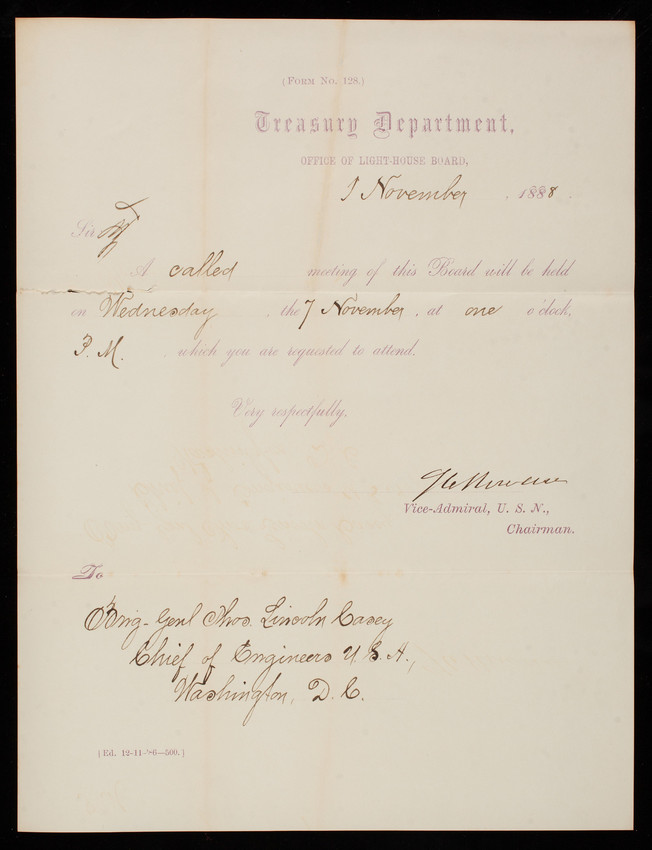 (FORM No. 128.)
Treasury Department,
OFFICE OF LIGHT-HOUSE BOARD,
1 November, 1888.
Sir
A called meeting of this Board will be held
on Wednesday, the 7 November, at one o'clock,
P. M. which you are requested to attend.
Very respectfully,
Vice-Admiral, U. S. N.,
Chairman.
To
Brig-Genl Thos. Lincoln Casey
Chief of Engineers U. S. A.,
Washington, D. C.
[Ed. 12-11-'86—500.]